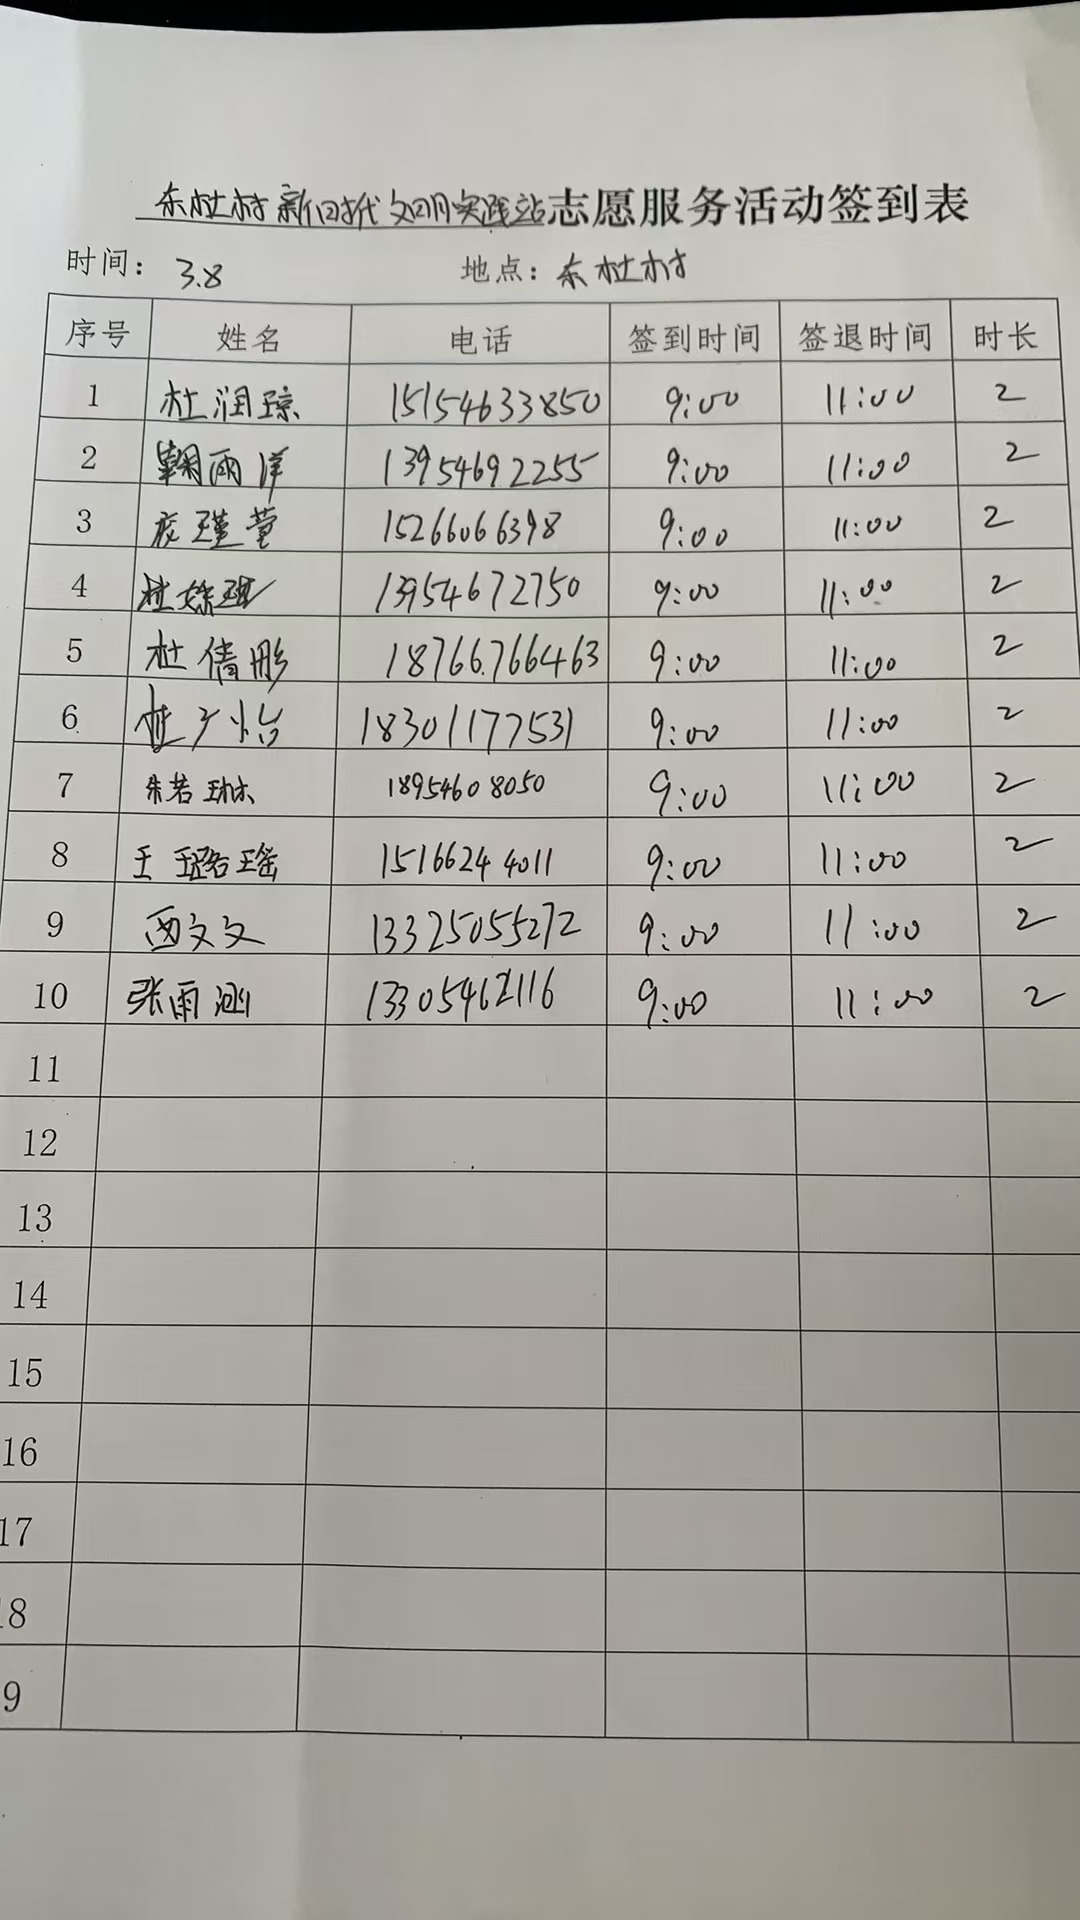 东杜村新时代文明实践站志愿服务活动签到表
时间：3.8 地点：东杜村
序号 姓名 电话 签到时间 签退时间 时长
1 杜润琼 15154633850 9:00 11:00 2
2 鞠雨洋 13954692255 9:00 11:00 2
3 瑾萱 15266066398 9:00 11:00 2
4 杜 13954672750 9:00 11:00 2
5 杜倩彤 18766766463 9:00 11:00 2
6 杜广怡 18301177531 9:00 11:00 2
7 朱若琳 18954608050 9:00 11:00 2
8 王璐瑶 15166244011 9:00 11:00 2
9 西文文 13325055272 9:00 11:00 2
10 张雨涵 13305462116 9:00 11:00 2
11
12
13
14
15
16
17
18
9